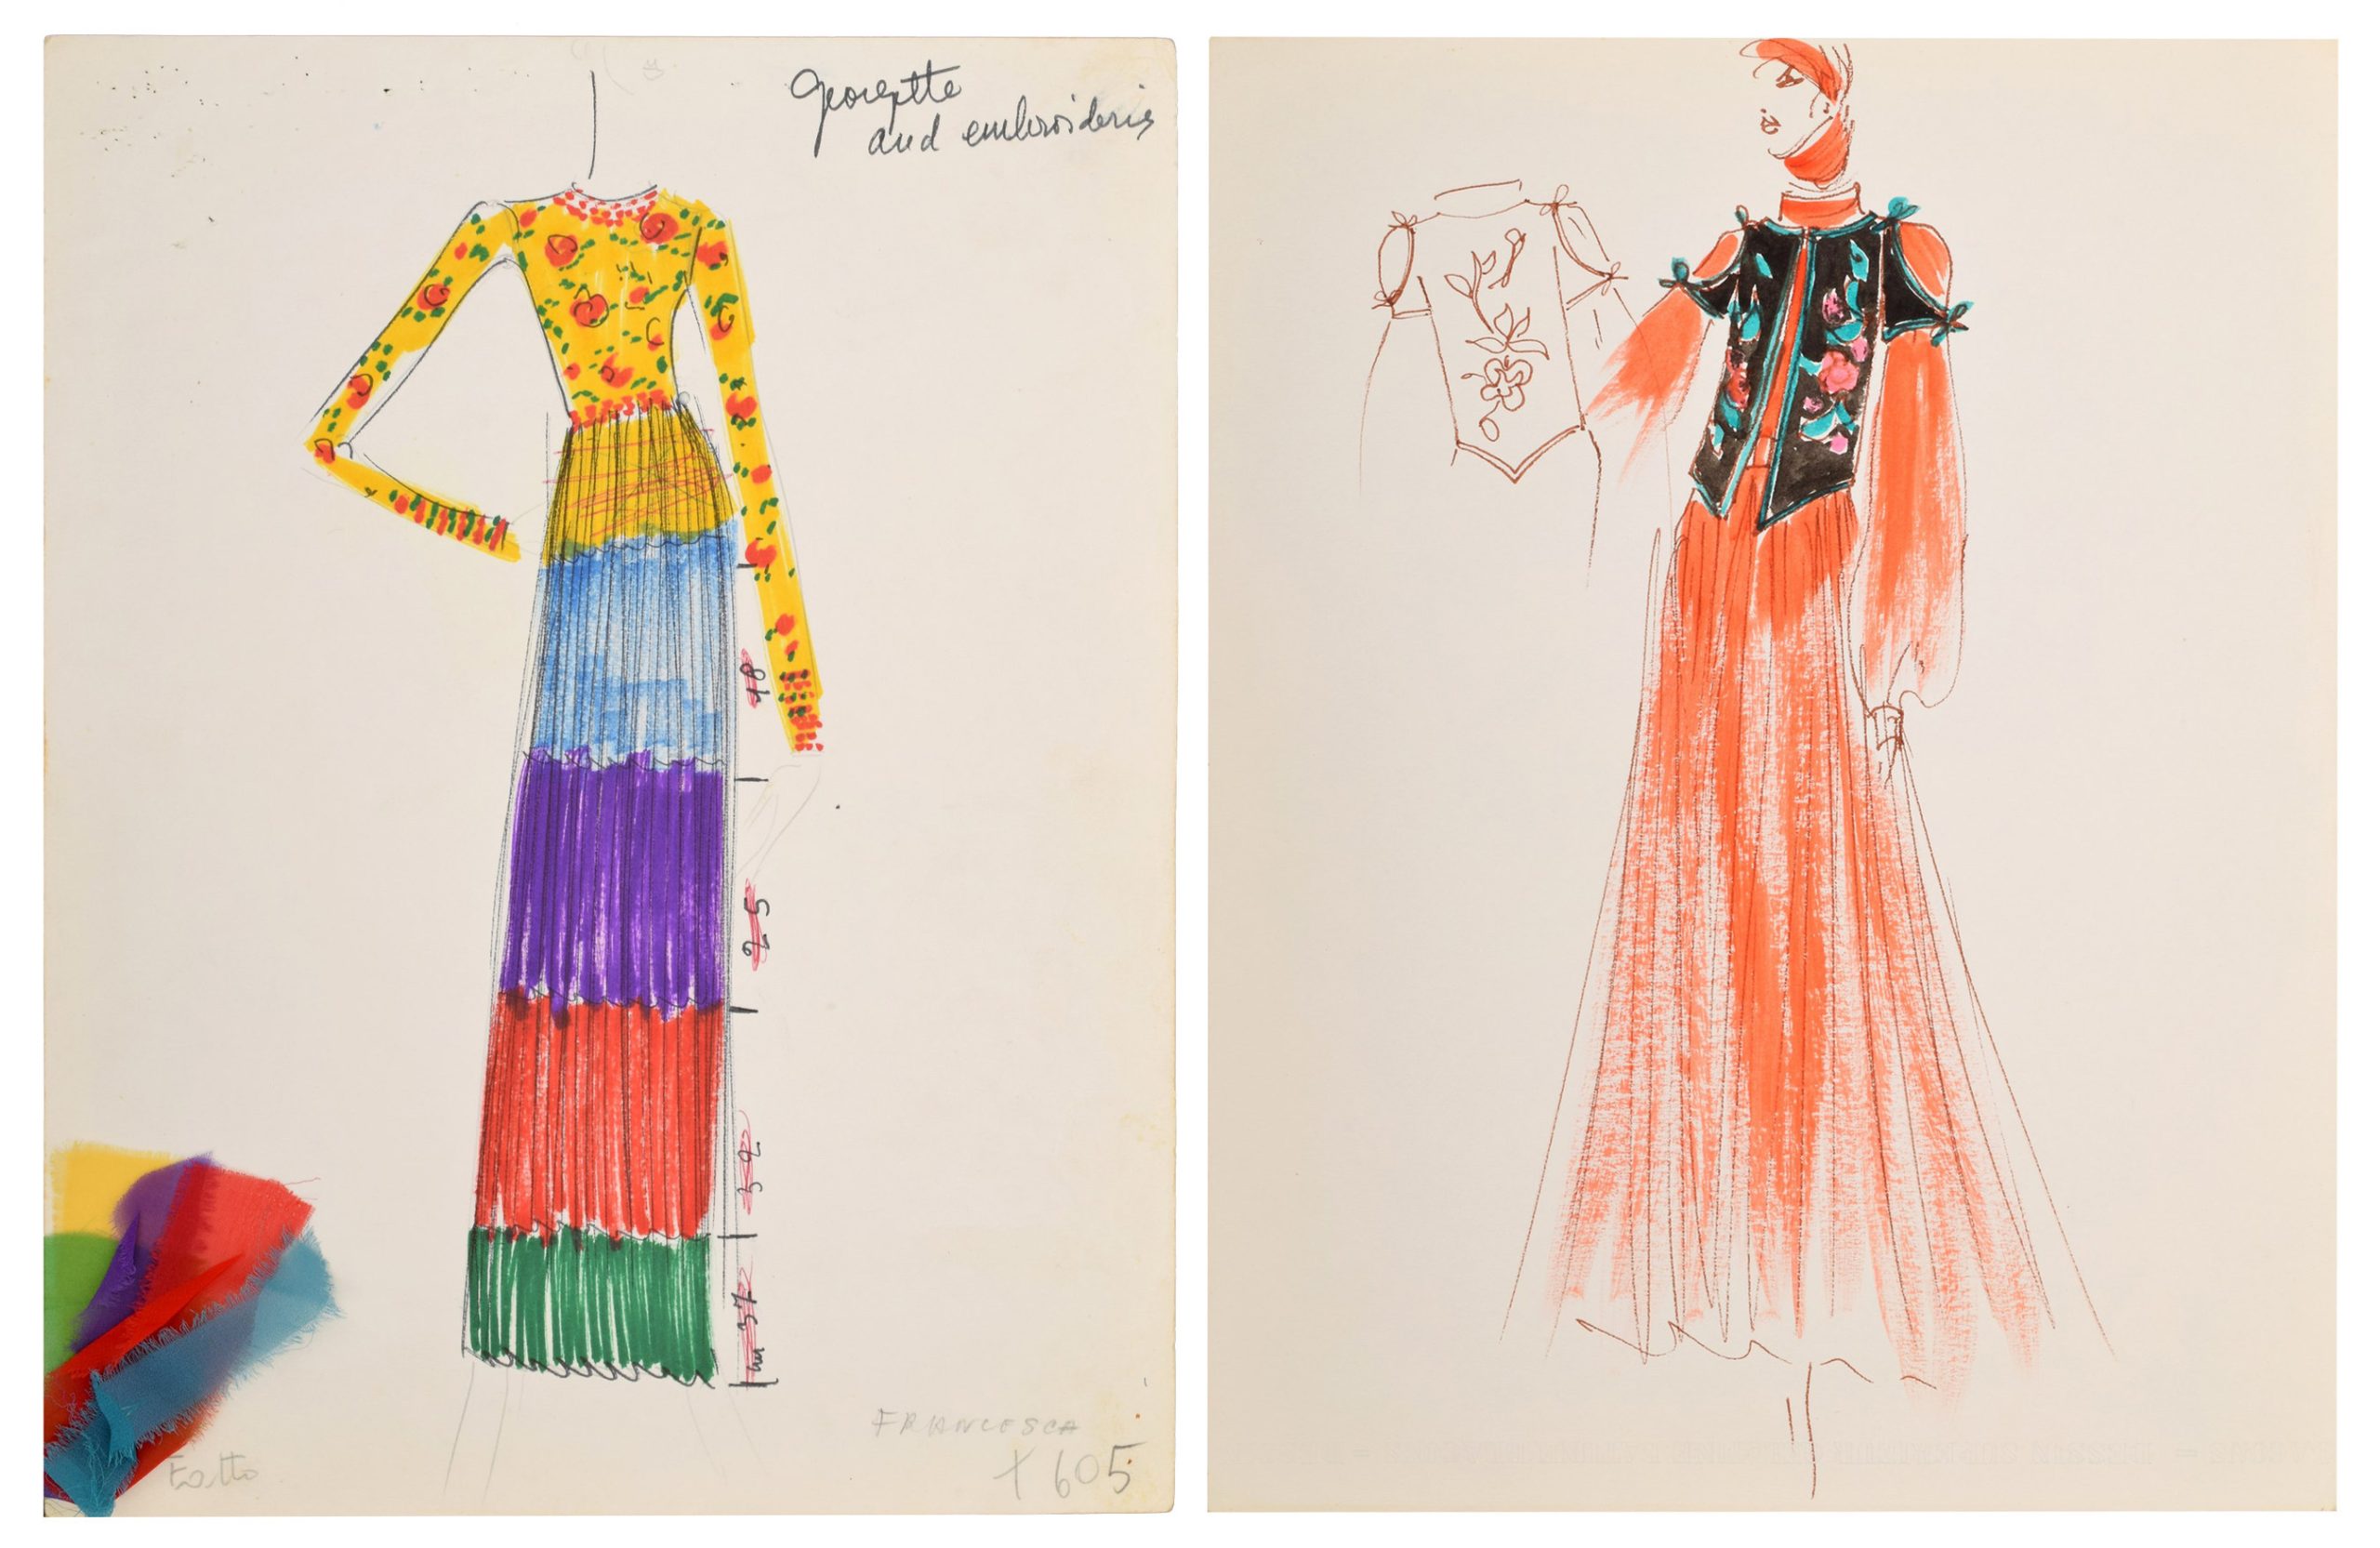 Georgette
and embroideries
48
25
32
cm 37
FRANCESCA
Fatto
+ 605